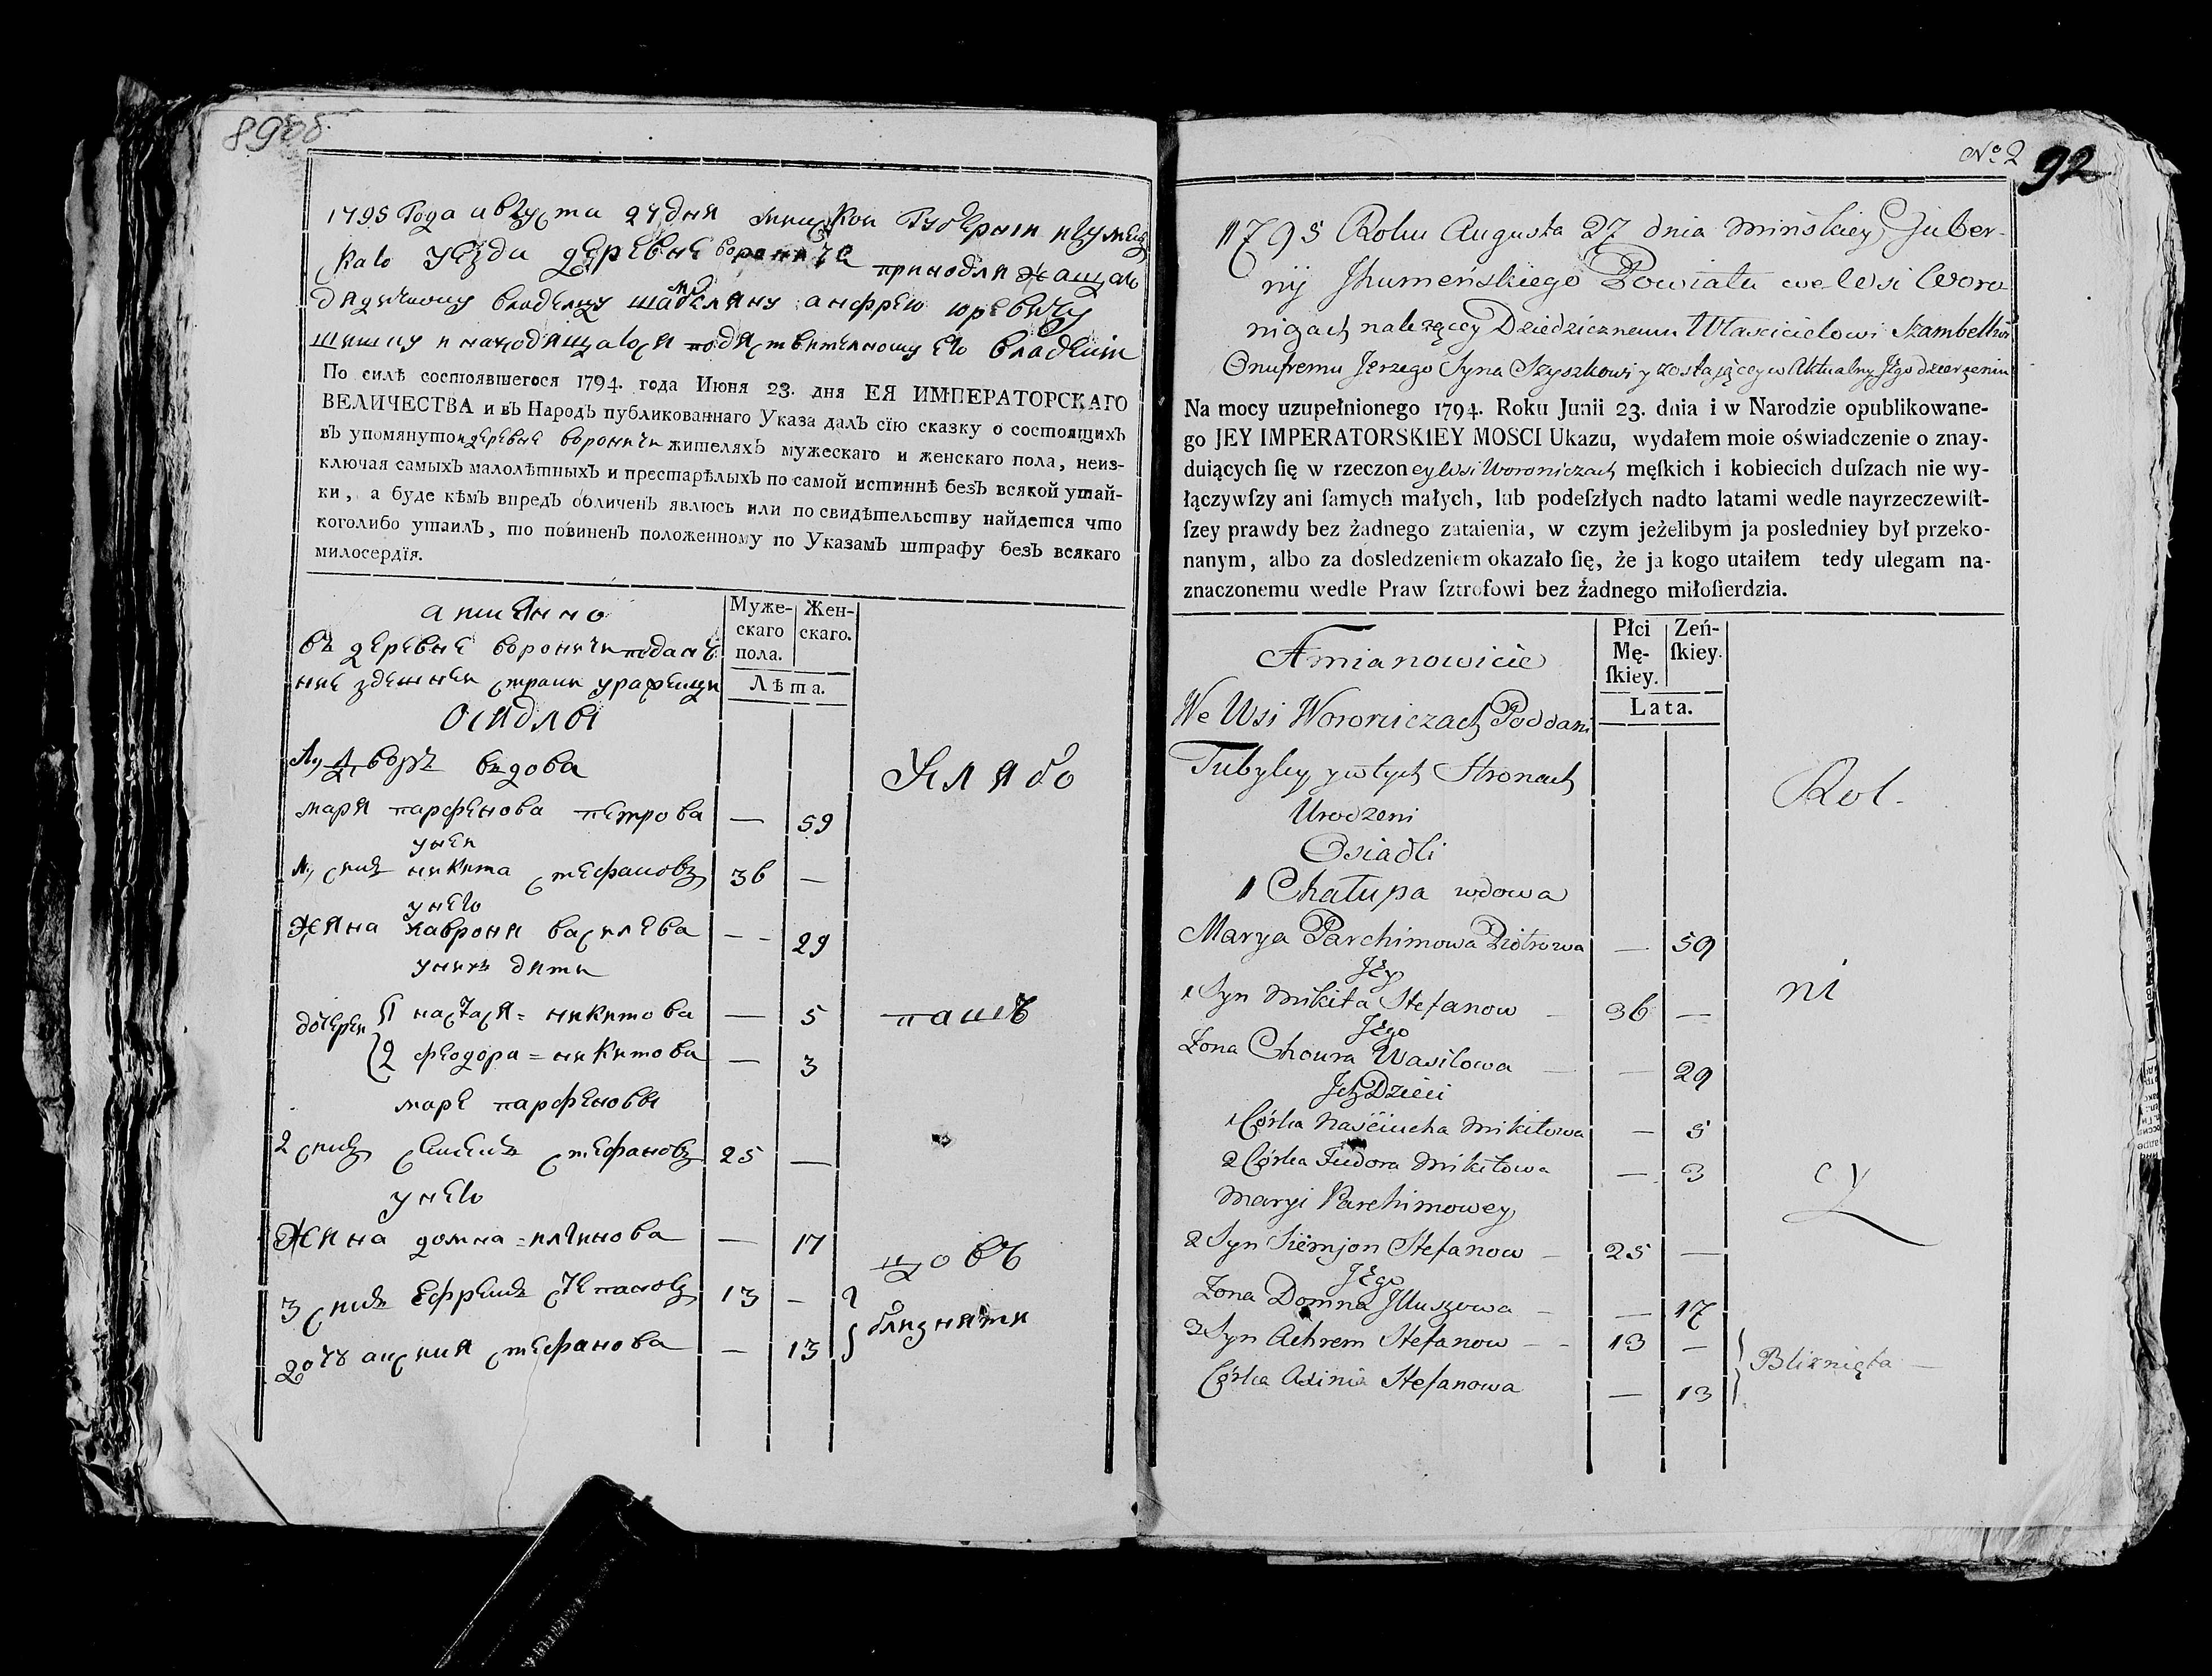 89об
1795 Года августа 27 дня минской Губернии игумен
скаго уезда деревне вороничe принодлижащаго
дидичному владелцу шамбеляну анфрею юревичу
шишку и находящагося подиствителному его владении
По силѣ состоявшегося 1794. года Июня 23. дня ЕЯ ИМПЕРАТОРСКАГО
ВЕЛИЧЕСТВА и въ Народъ публикованнаго Указа далъ сїю сказку о состоящихъ
въ упомянутои деревне вороничи жителяхъ мужескаго и женскаго пола, неиз-
ключая самыхъ малолѣтныхъ и престарѣлыхъ по самой истиннѣ безъ всякой утай-
ки, а буде кѣмъ впредъ обличенъ явлюсь или по свидѣтельству найдется что
коголибо утаилъ, то повиненъ положенному по Указамъ штрафу безъ всякаго
милосердїя.
а пменно
въ деревне вороничи подан
ние здешней страни
осидлы
Муже-
скаго
пола.
Жен-
скаго.
Лѣта.
1, дворъ вдова
мария парфенова петрова — 59
унеи
1, синъ никита стефановъ 36 —
унего
жина хаврони василева — 29
унихъ дити
дочереи 1 настася = никитова — 5
2 феодора = никитова — 3
маре парфеновы
2 синъ семенъ стефановъ 25 —
унего
жина домна = илинова — 17
3 синъ ефремъ степановъ 13 —
дочь аксиния стефанова — 13
близняти
хлябо
пашъ
цовъ
No 2
92
1795 Roku Augusta 27 dnia Mińskiey Guber-
nij Jhumeńskiego Powiatu we Wsi Woro
niczach należącey Dziedzicznemu Włascicielowi Szambellno
Onufremu Jerzego Syna Szyszkowi y zostającey w Aktualnym Jego dzierżeniu
Na mocy uzupełnionego 1794. Roku Junii 23. dnia i w Narodzie opublikowane-
go JEY IMPERATORSKIEY MOSCI Ukazu, wydałem moie oświadczenie o znay-
duiących ſię w rzeczoney Wsi Woroniczach męſkich i kobiecich duſzach nie wy-
łączywſzy ani ſamych małych, lub podeſzłych nadto latami wedle nayrzeczewiſt-
ſzey prawdy bez żadnego zataienia, w czym jeżelibym ja posledniey był przeko-
nanym, albo za dosledzeniem okazało ſię, że ja kogo utaiłem tedy ulegam na-
znaczonemu wedle Praw ſztrofowi bez żadnego miłoſierdzia.
Amianowicie
We Wsi Woroniczach Poddani
Tubylcy y w tych Stronach
Urodzeni
Osiadli
Płci
Mę-
ſkiey.
Zeń-
ſkiey.
Lata.
1 Chałupa wdowa
Marya Parchimowa Piotrowa — 59
Jey
1 Syn Mikita Stefanow — 36 —
Jego
Zona Choura Wasilowa — — 29
Jch Dzieci
1 Córka Naściucha Mikitowa — 5
2 Córka Fiedora Mikitowa — 3
Maryi Parchimowey
2 Syn Siemjon Stefanow — 25 —
Jego
Zona Domna Jlluszowa — — 17
3 Syn Achrem Stefanow — — 13 —
Córka Axinia Stefanowa — 13
Bliznięta —
Rol-
ni
cy